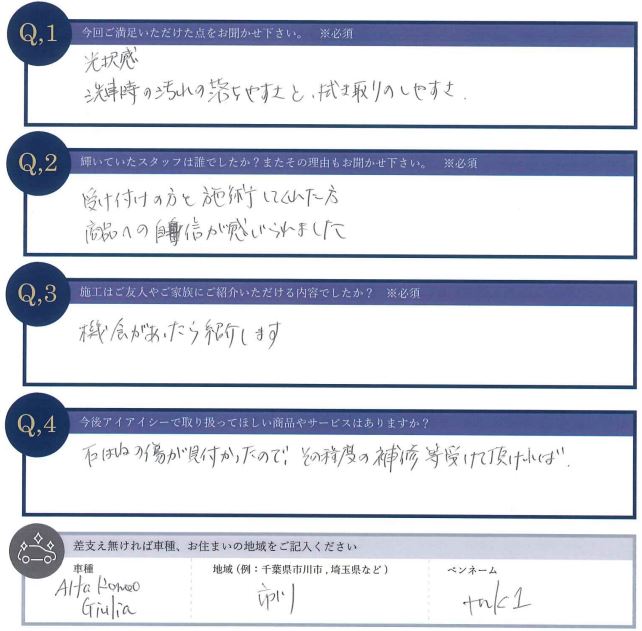 Q,1 今回ご満足いただけた点をお聞かせ下さい。 ※必須
光沢感
洗車時の汚れの落ちやすさと、拭き取りのしやすさ.
Q,2 輝いていたスタッフは誰でしたか？またその理由もお聞かせ下さい。 ※必須
受け付けの方と施術してくれた方
商品への自信が感じられました
Q,3 施工はご友人やご家族にご紹介いただける内容でしたか？ ※必須
機会があったら紹介します
Q,4 今後アイアイシーで取り扱ってほしい商品やサービスはありますか？
石はねの傷が見付かったので、その程度の補修等受けて頂ければ.
差支え無ければ車種、お住まいの地域をご記入ください
車種 地域（例：千葉県市川市，埼玉県など） ペンネーム
Alfa Romeo
Giulia 市川